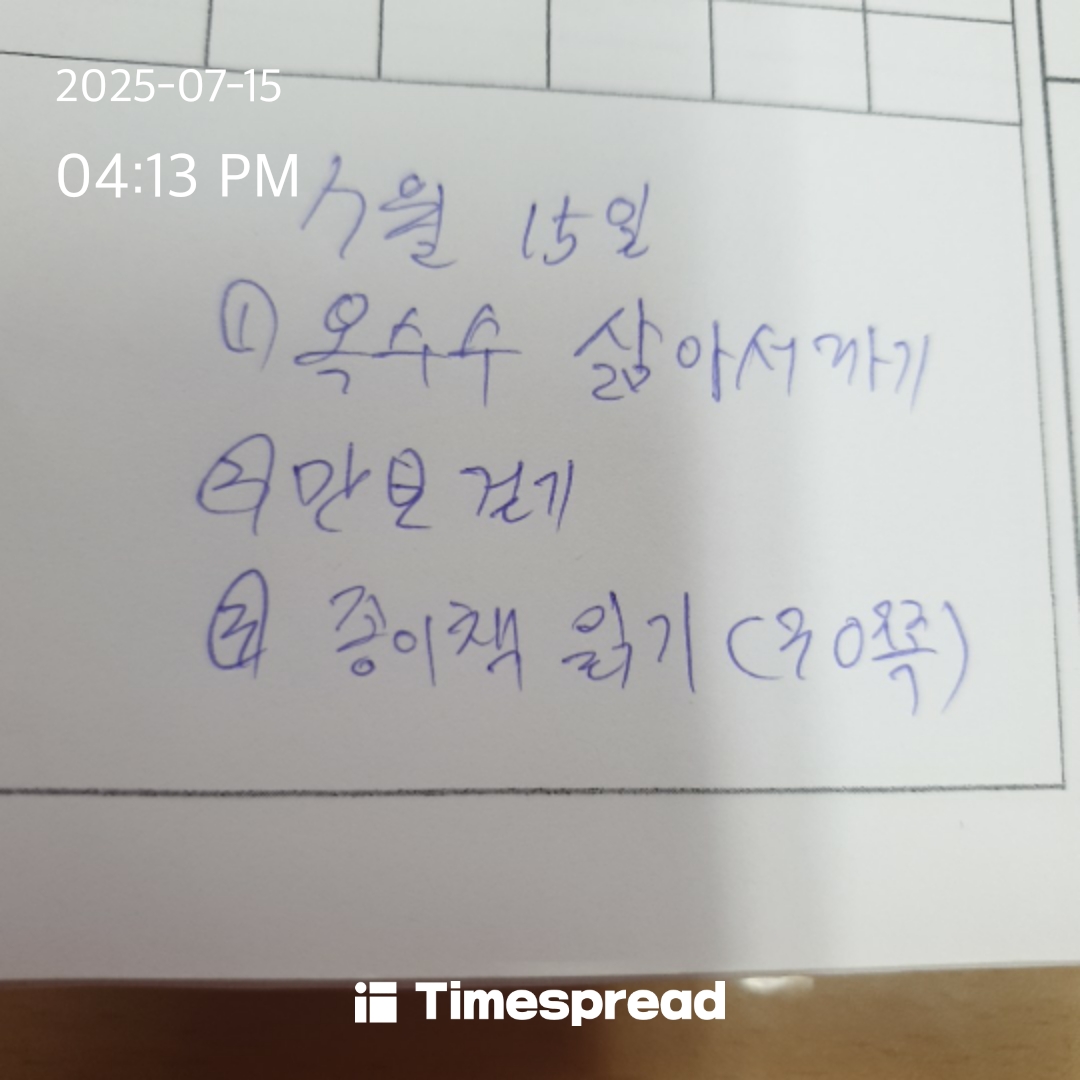 2025-07-15
04:13 PM
7월 15일
① 옥수수 삶아서 까기
② 만보 걷기
③ 종이책 읽기 (30쪽)
Timespread